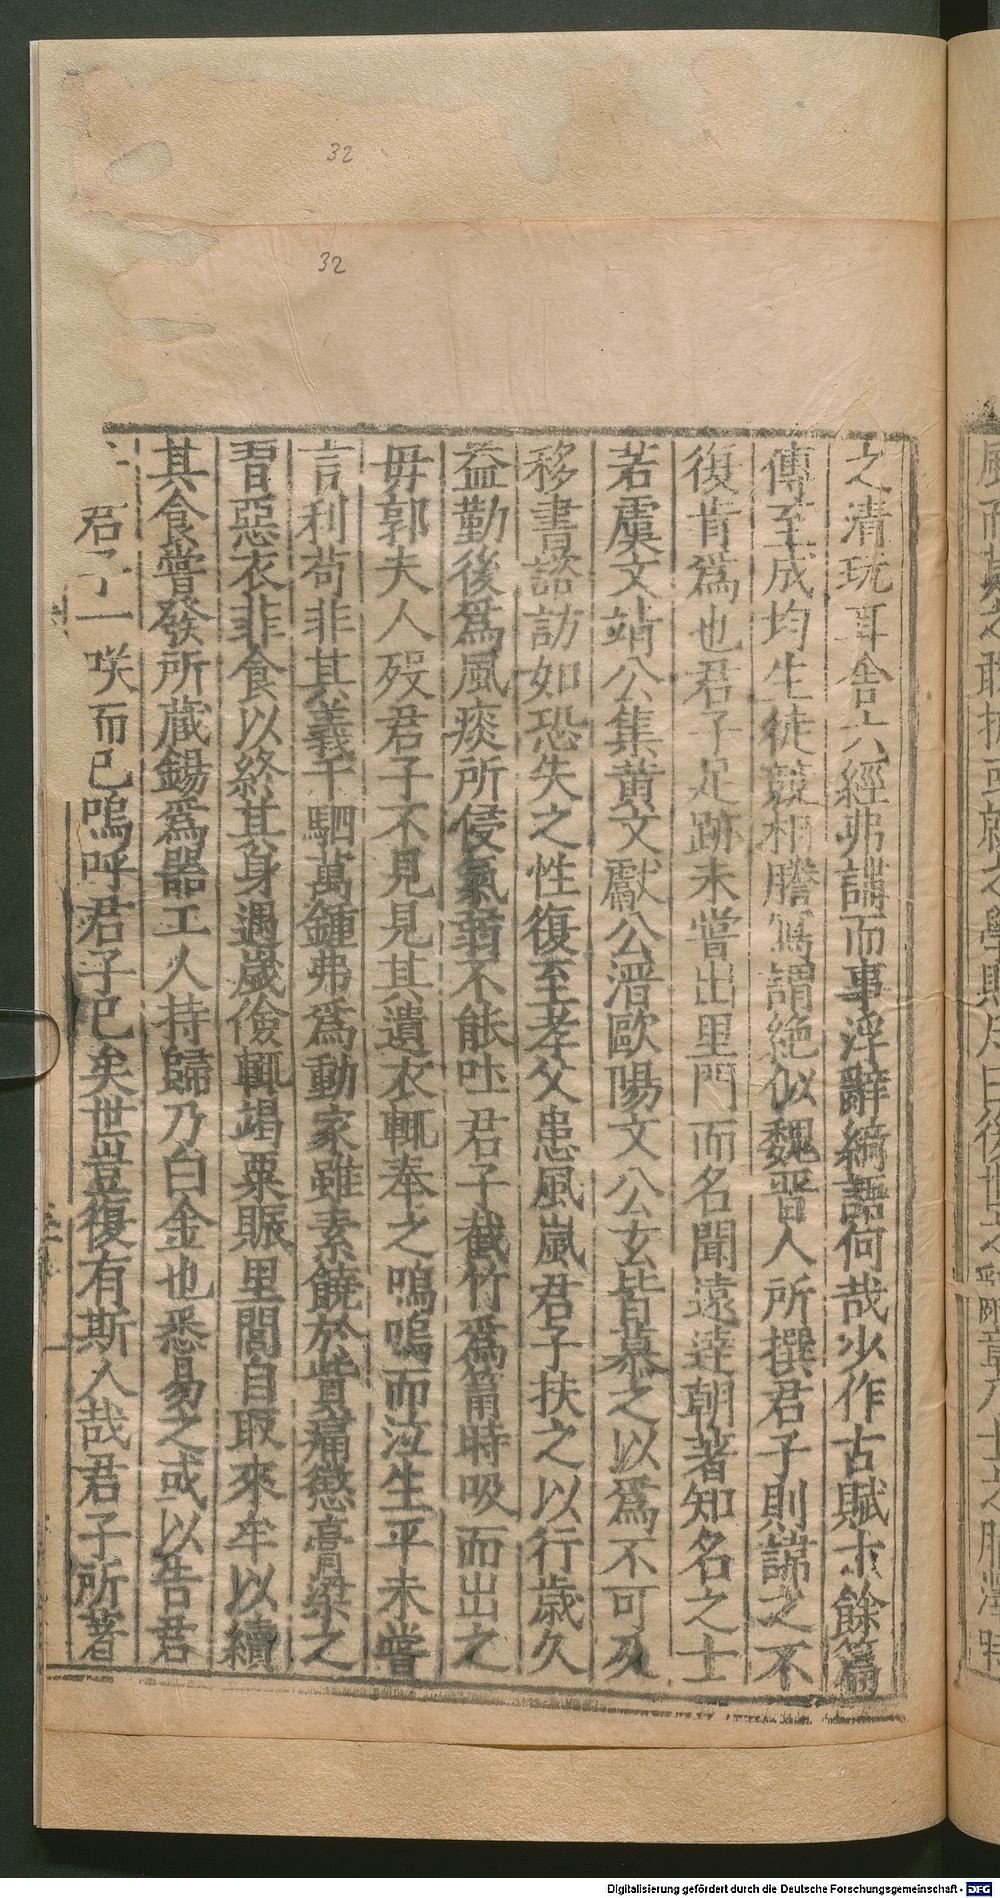 32
32
之清玩耳舍六經弗講而事浮辭綺語何哉少作古賦十餘篇
傳至成均生徒競相謄寫謂絶似魏晉人所撰君子則諱之不
復肯爲也君子足跡未嘗出里門而名聞遠逹朝著知名之士
若虞文靖公集黄文獻公溍歐陽文公玄皆慕之以爲不可及
移書諮訪如恐失之性復至孝父患風嵐君子扶之以行歳久
益勤後爲風痰所侵氣弱不能吐君子截竹爲筩時吸而出之
毋郭夫人歿君子不見見其遺衣輒奉之嗚嗚而泣生平未嘗
言利茍非其義千駟萬鍾弗爲動家雖素饒於貲痛懲膏粱之
習惡衣非食以終其身遇歲儉輒竭粟賑里閭自取來牟以續
其食嘗發所蔵錫爲器工人持歸乃白金也悉易之或以告君
君子一咲而已嗚呼君子已矣世豈復有斯人哉君子所著
Digitalisierung gefördert durch die Deutsche Forschungsgemeinschaft - DFG